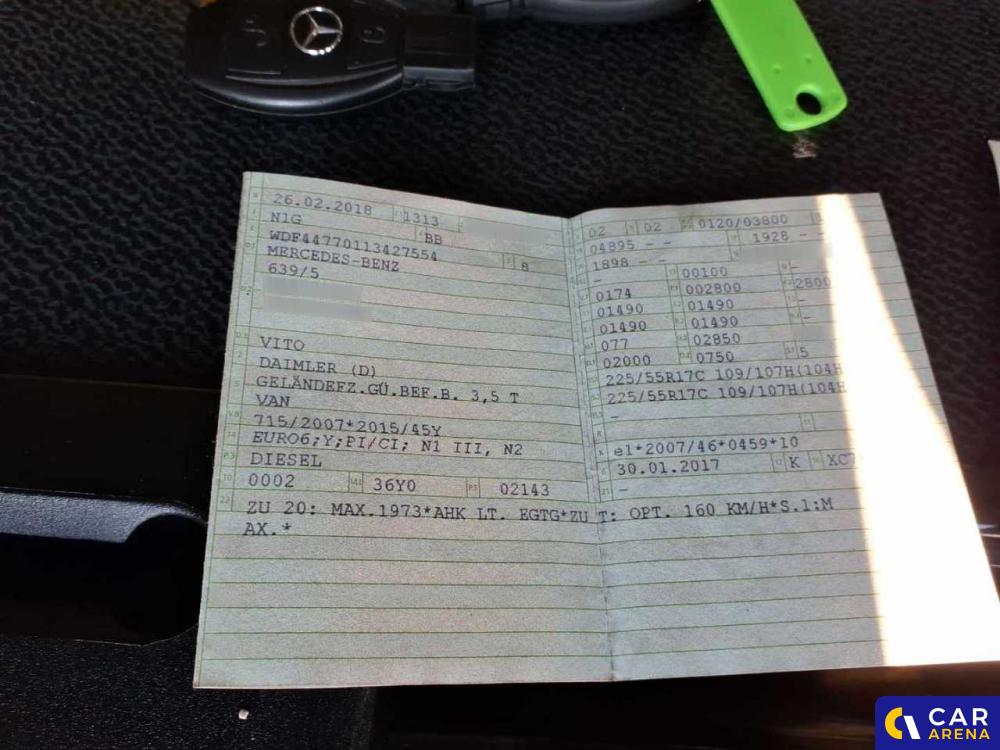 26.02.2018 1313
N1G BB
WDF44770113427554 8
MERCEDES-BENZ
639/5
VITO
DAIMLER (D)
GELÄNDEFZ.GÜ.BEF.B. 3,5 T
VAN
715/2007*2015/45Y
EURO6;Y;PI/CI; N1 III, N2
DIESEL
0002 36Y0 02143
02 02 0120/03800
04895 - - 1928 - -
1898 - -
- 00100 -
0174 002800 2800
01490 01490 -
01490 01490 -
077 02850
02000 0750 5
225/55R17C 109/107H(104H
225/55R17C 109/107H(104H
-
e1*2007/46*0459*10
30.01.2017 K
-
ZU 20: MAX.1973*AHK LT. EGTG*ZU T: OPT. 160 KM/H*S.1:M
AX.*
CAR
ARENA